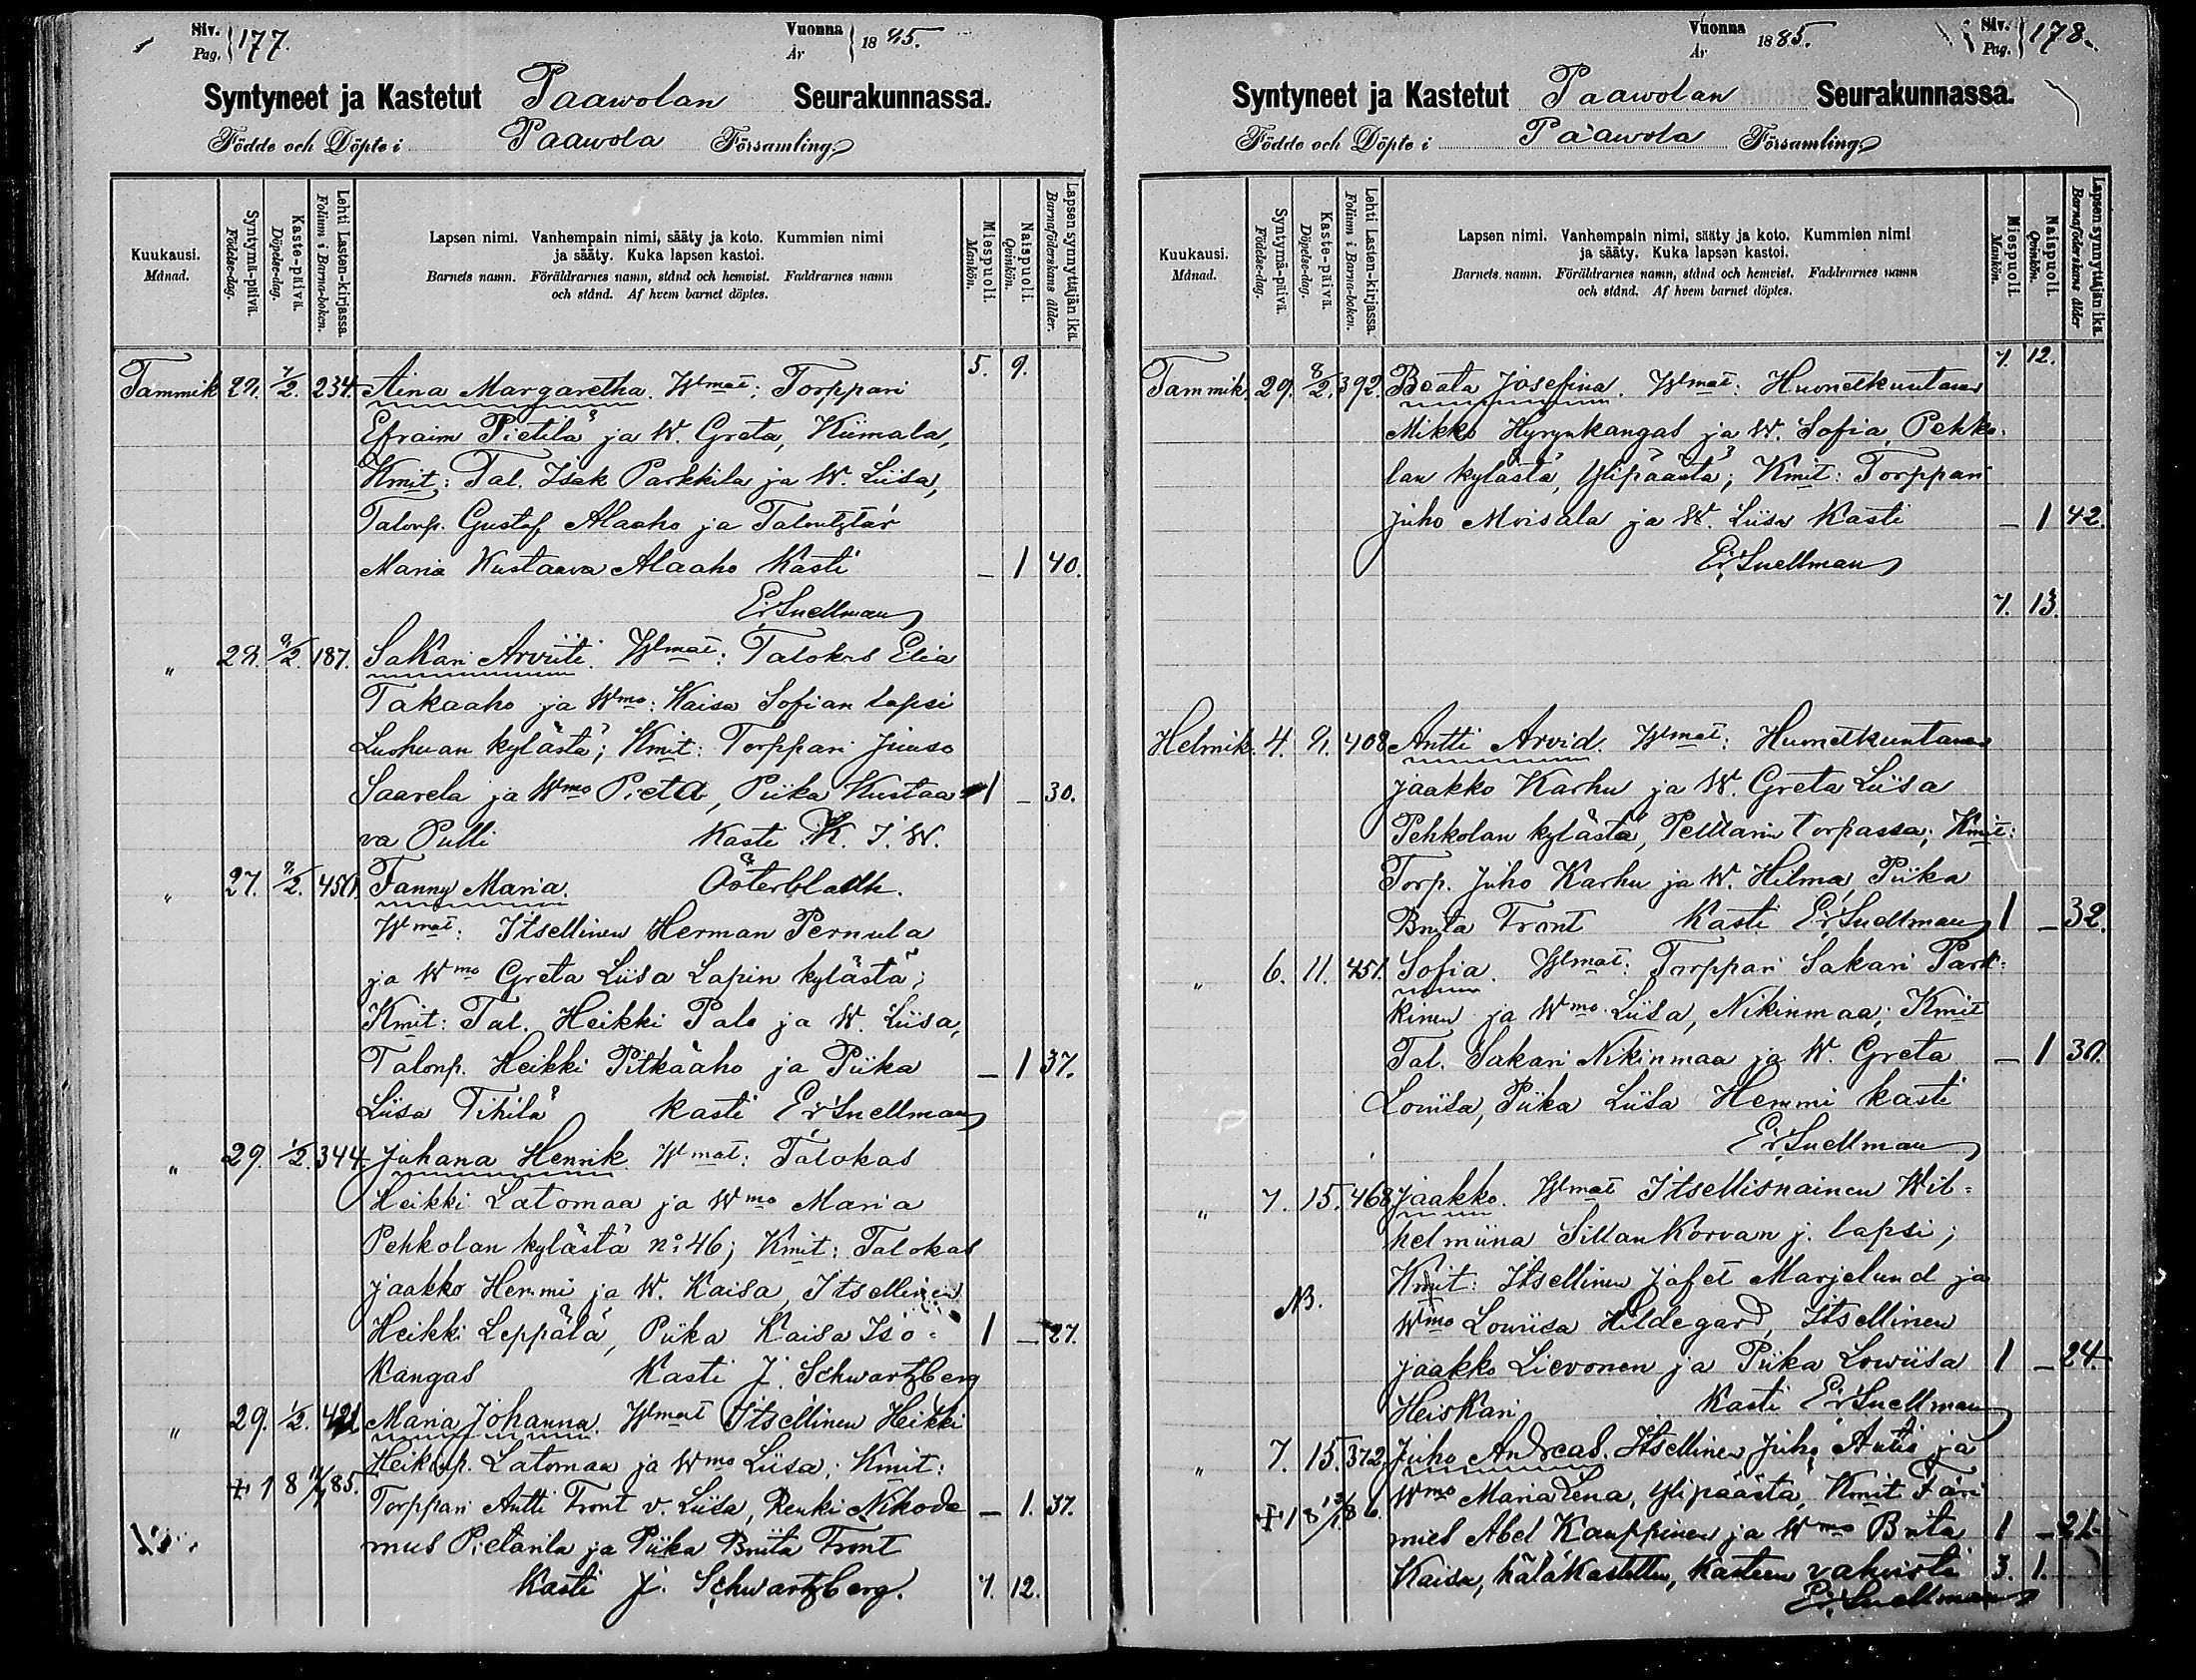 Siv. Pag. 177.
Vuonna År 1885.
Syntyneet ja Kastetut Paawolan Seurakunnassa.
Födde och Döpte i Paawola Församling.
Kuukausi. Månad.
Syntymä-päivä. Födelse-dag.
Kaste-päivä. Döpelse-dag.
Lehti Lasten-kirjassa. Folium i Barna-boken.
Lapsen nimi. Vanhempain nimi, sääty ja koto. Kummien nimi
ja sääty. Kuka lapsen kastoi.
Barnets namn. Föräldrarnes namn, stånd och hemvist. Faddrarnes namn
och stånd. Af hvem barnet döptes.
Miespuoli. Mankön.
Naispuoli. Qvinkön.
Lapsen synnyttäjän ikä. Barnaföderskans ålder.
5. 9.
Tammik 29. 7/2. 234. Aina Margaretha. Wmat: Torppari
Efraim Pietilä ja W. Greta, Kiimala,
Kmit: Tal. Isak Parkkila ja W. Liisa,
Talonp. Gustaf Alaaho ja Talontytär
Maria Kustaava Alaaho Kasti — 1 40.
Er. Snellman
" 28. 9/2. 187. Sakari Arviiti. Wmat: Talokas Elia
Takaaho ja Wmo: Kaisa Sofian lapsi
Luohuan kylästä; Kmit: Torppari Juuso
Saarela ja Wmo Pieta, Piika Kustaa 1 — 30.
va Pulli Kasti K. I. W.
" 27. 9/2. Fanny Maria. Österbladh.
Wmat: Itsellinen Herman Pernula
ja Wmo Greta Liisa Lapin kylästä;
Kmit: Tal. Heikki Palo ja W. Liisa,
Talonp. Heikki Pitkäaho ja Piika — 1 37.
Liisa Tihilä Kasti Er. Snellman
" 29. 1/2. 344 Juhana Henrik Wmat: Talokas
Heikki Latomaa ja Wmo Maria
Pehkolan kylästä no: 46; Kmit: Talokas
Jaakko Hemmi ja W. Kaisa, Itsellinen
Heikki Leppälä, Piika Kaisa Iso= 1 — 27.
kangas Kasti J. Schwartzberg
" 29. 1/2. 421 Maria Johanna. Wmat Itsellinen Heikki
Heikinp. Latomaa ja Wmo Liisa; Kmit:
Torppari Antti Front v. Liisa, Renki Nikode — 1. 37.
mus Pietarila ja Piika Briita Front
Kasti J. Schwartzberg. 7. 12.
Vuonna År 1885.
Siv. Pag. 178.
Syntyneet ja Kastetut Paawolan Seurakunnassa.
Födde och Döpte i Paawola Församling.
Kuukausi. Månad.
Syntymä-päivä. Födelse-dag.
Kaste-päivä. Döpelse-dag.
Lehti Lasten-kirjassa. Folium i Barna-boken.
Lapsen nimi. Vanhempain nimi, sääty ja koto. Kummien nimi
ja sääty. Kuka lapsen kastoi.
Barnets namn. Föräldrarnes namn, stånd och hemvist. Faddrarnes namn
och stånd. Af hvem barnet döptes.
Miespuoli. Mankön.
Naispuoli. Qvinkön.
Lapsen synnyttäjän ikä. Barnaföderskans ålder
7. 12.
Tammik 29. 8/2. 392. Beata Josefina. Wmat: Huonetkuntanen
Mikko Hyrynkangas ja W. Sofia, Pehko-
lan kylästä, Ylipäästä; Kmit: Torppari
Juho Moisala ja W. Liisa Kasti — 1 42.
Er. Snellman
7. 13.
Helmik. 4. 9. 408 Antti Arvid. Wmat: Huonetkuntanen
Jaakko Karhu ja W. Greta Liisa
Pehkolan kylästä, torpassa; Kmit:
Torp. Juho Karhu ja W. Hilma, Piika
Briita Front Kasti Er. Snellman 1 — 32.
" 6. 11. 451. Sofia. Wmat: Torppari Sakari Park=
kinen ja Wmo Liisa, Nikinmaa; Kmit
Tal. Sakari Nikinmaa ja W. Greta — 1 30.
Lovisa, Piika Liisa Hemmi kasti
Er. Snellman
" 7. 15. 468 Jaakko. Wmat Itsellisnainen Wil=
helmiina Sillankorvan j. lapsi;
Kmit: Itsellinen Jafet Marjelund ja
NB. Wmo Lowisa Hildegard, Itsellinen
Jaakko Lievonen ja Piika Lowiisa 1 — 24
Heiskari Kasti Er. Snellman
" 7. 15. 372 Juho Andreas. Itsellinen Juho Antio ja
Wmo Maria Lena, Ylipäästä, Kmit Färi
mies Abel Kauppinen ja Wmo Brita 1 — 21
Kaisa, hätäkastettu, kasteen vahvisti 3. 1.
Er. Snellman